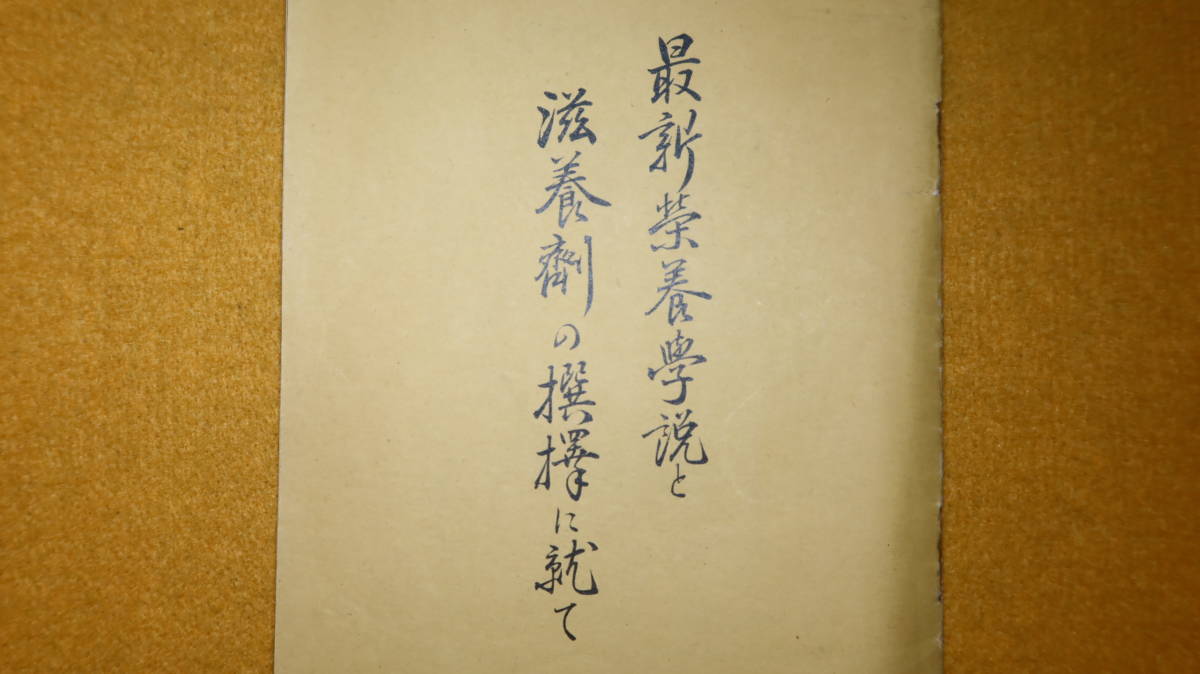 最新榮養學説と
滋養劑の撰擇に就て